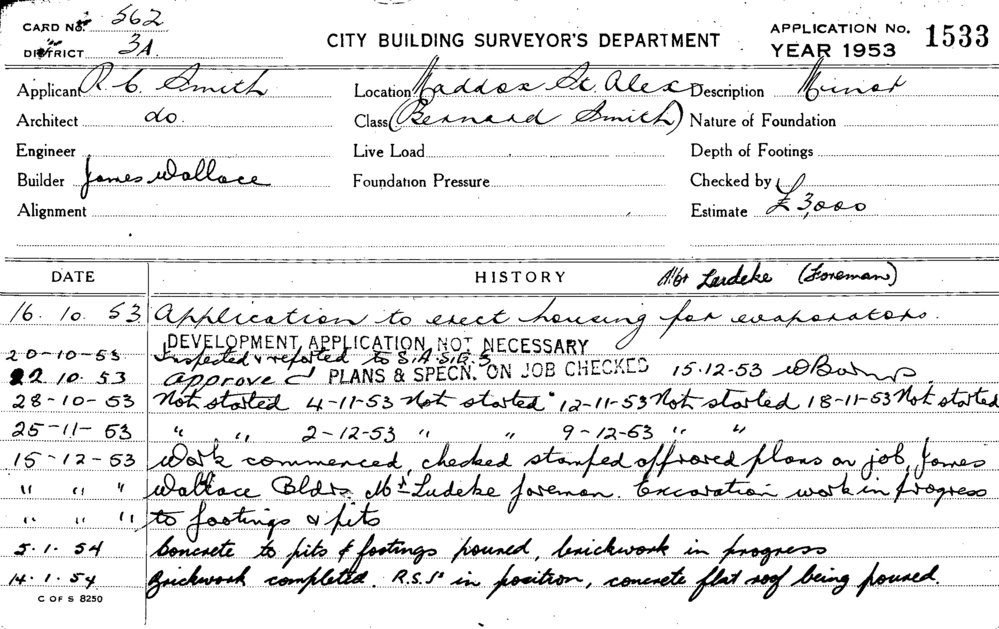 CARD No. 562
DISTRICT 3A
CITY BUILDING SURVEYOR'S DEPARTMENT
APPLICATION No. 1533
YEAR 1953
Applicant R. C. Smith Location Maddox St. Alex Description Minor
Architect do. Class (Bernard Smith) Nature of Foundation
Engineer Live Load Depth of Footings
Builder James Wallace Foundation Pressure Checked by
Alignment Estimate £3,000
DATE HISTORY (Foreman)
16. 10. 53 Application to erect housing for evaporators.
DEVELOPMENT APPLICATION NOT NECESSARY
20-10-53 Inspected & reported to
22. 10. 53 Approved PLANS & SPECN. ON JOB CHECKED 15.12-53
28-10-53 Not started 4-11-53 Not started 12-11-53 Not started 18-11-53 Not started
25-11-53 " " 2-12-53 " " 9-12-53 " "
15-12-53 Work commenced, checked stamped approved plans on job, James
" " " Wallace Bldrs Mr Ludeke foreman. Excavation work in progress
" " " to footings & pits
5.1.54 Concrete to pits & footings poured, brickwork in progress
14.1.54 Brickwork completed. R.S.Js in position, concrete flat roof being poured.
C OF S 8250